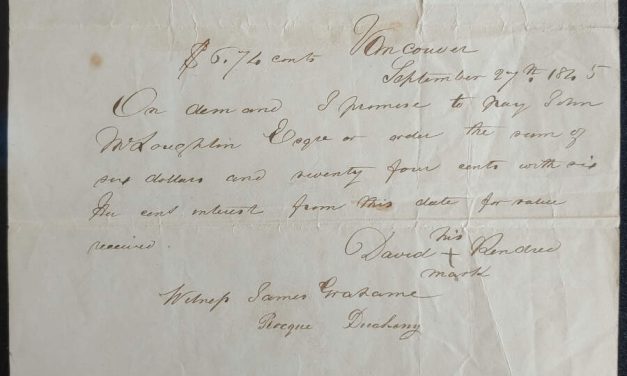 $ 6.74 cents Vancouver
September 27th 1845
On demand I promise to pay John
McLoughlin Esqre or order the sum of
six dollars and seventy four cents with six
per cent interest from this date for value
received.
his
David + Kendree
mark
Witness James Grahame
Rocque Duchany